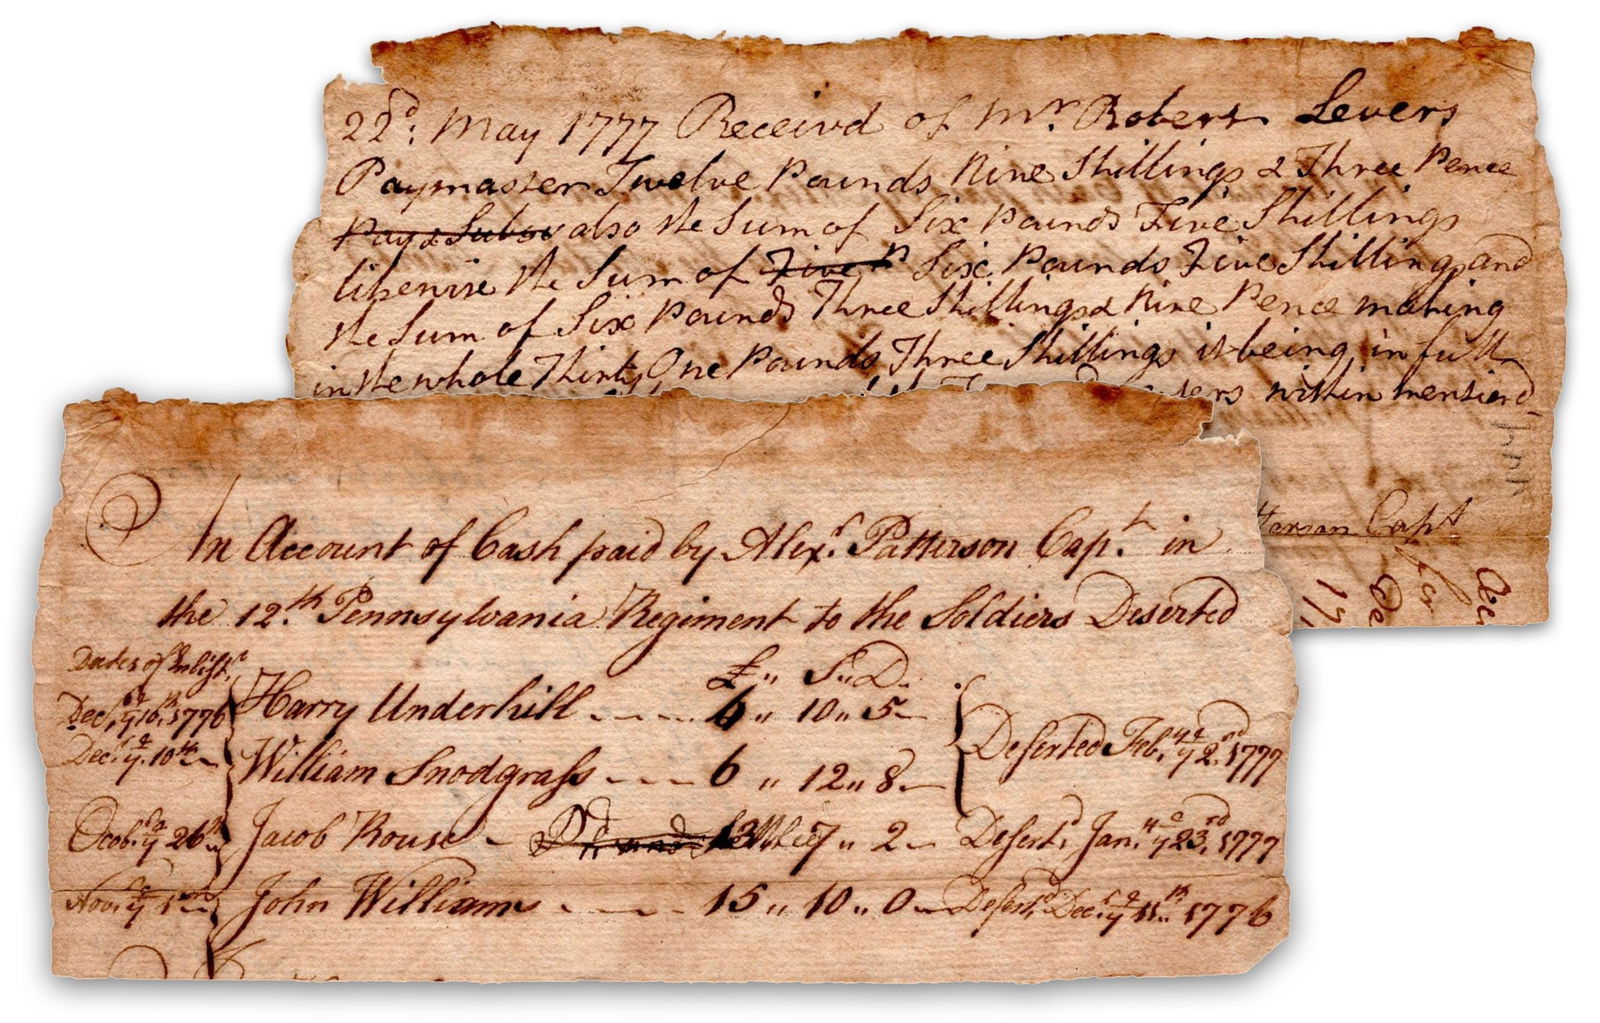 22d. May 1777 Receivd of Mr. Robert Levers
Paymaster Twelve Pounds Nine Shillings & Three Pence
Pay & also the Sum of Six Pounds Five Shillings
likewise the Sum of Five P Six Pounds Five Shillings and
the Sum of Six Pounds Three Shillings & Nine Pence making
in the whole Thirty One Pounds Three Shillings it being in full
within mentiond
Capt
for
17
An Account of Cash paid by Alexr. Patterson Capt. in
the 12th Pennsylvania Regiment to the Soldiers Deserted
Dates of Enlistt.
£ " S " D
Decr. ye 10th 1776 Harry Underhill 6 " 10 " 5
Decr. ye 10th William Snodgrass 6 " 12 " 8 Deserted Feb. ye 2nd 1777
Octob. ye 26th Jacob Rouse 13 " 7 " 2 Desertd. Jany. ye 23rd, 1777
Novr. ye John Williams 15 " 10 " 0 Desertd. Decr. ye 11th 1776